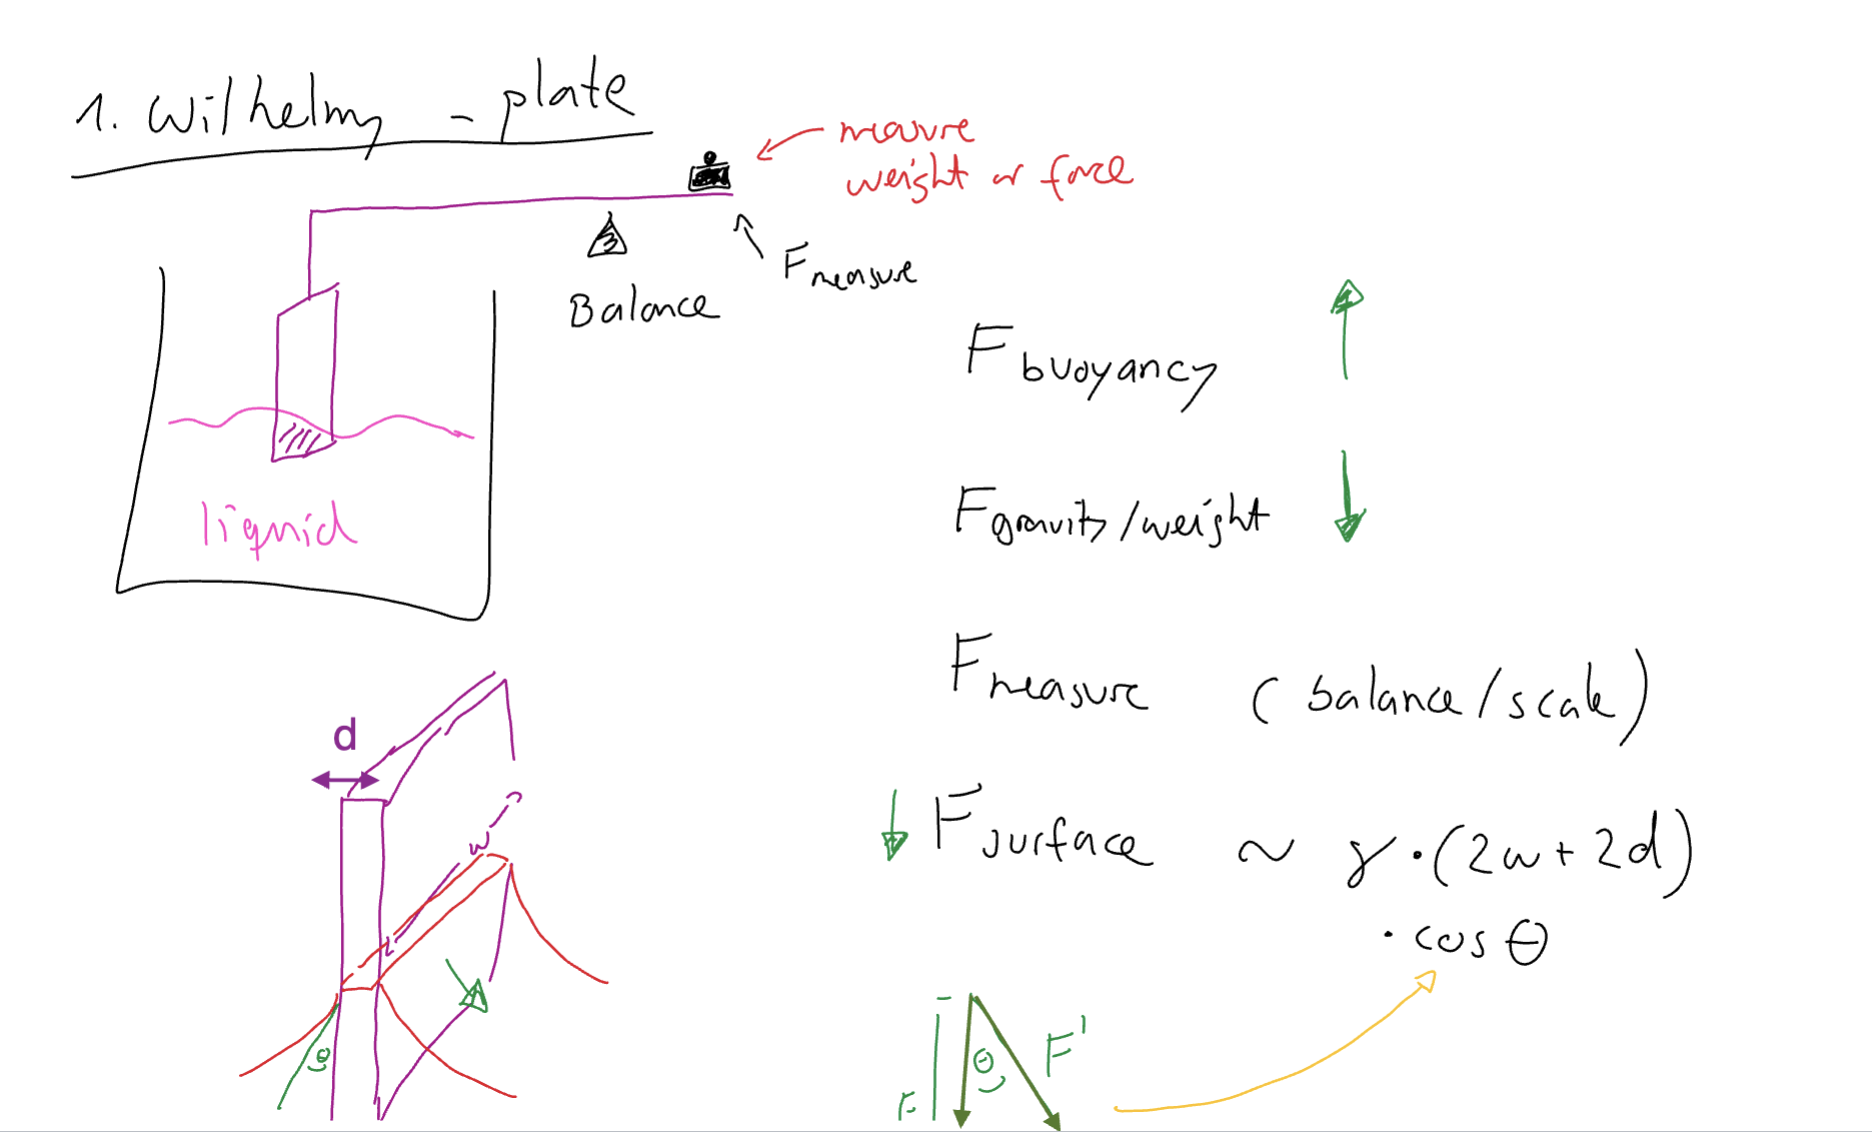 1. Wilhelmy - plate
measure
weight or force
F measure
Balance
liquid
F buoyancy
F gravity/weight
F measure (balance/scale)
F surface ~ γ·(2w+2d)
· cos θ
d
w
θ
F
θ
F'